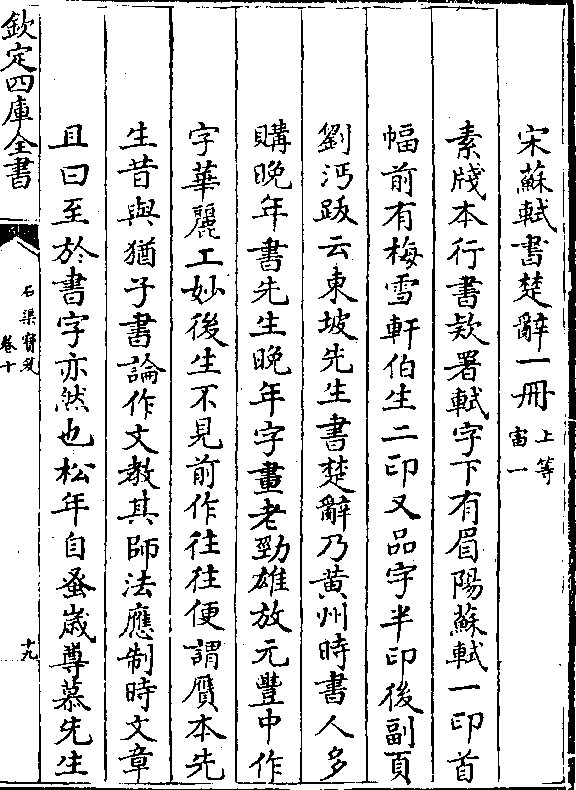 宋蘇軾書楚辭一冊上等宙一
素牋本行書欵署軾字下有眉陽蘇軾一印首
幅前有梅雪軒伯生二印又品字半印後副頁
劉沔跋云東坡先生書楚辭乃黄州時書人多
購晚年書先生晚年字畫老勁雄放元豐中作
字華麗工妙後生不見前作往往便謂贋本先
生昔與猶子書論作文教其師法應制時文章
且曰至於書字亦然也松年自蚤歳尊慕先生
欽定四庫全書
石渠寳笈
卷十
十九